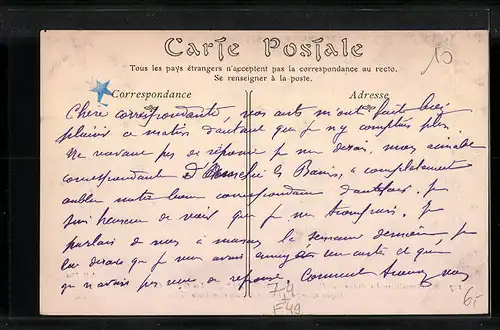 Carte Postale
Tous les pays étrangers n'acceptent pas la correspondance au recto.
Se renseigner à la poste.
Correspondance
Adresse
10
Chère correspondante, vos carts m'ont faite bien
plaisir ce matin d'autant que je n'y comptais plus
Ne recevant pas de réponse je me disais, mon aimable
correspondante d' les Bains, a complètement
oublier notre bonne correspondance d'autrefois. Je
suis heureux de voir que je me trompais. Je
parlais de vous à maman la semaine dernière, je
lui disais que je vous avais une carte et que
je n'avais pas reçu de réponse. Comment vous
7.4
F49
6,-